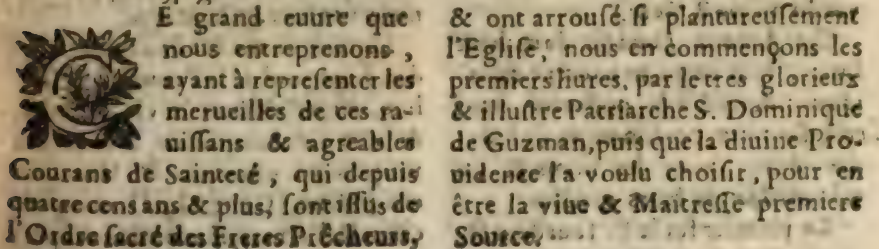 CE grand euure que
nous entreprenons,
ayant à repreſenter les
merueilles de ces ra-
uiſſans & agreables
Courans de Sainteté, qui depuis
quatre cens ans & plus, ſont iſſus de
l'Ordre ſacré des Freres Prêcheurs,
& ont arrouſé ſi plantureuſement
l'Egliſe, nous en commençons les
premiers liures, par le tres glorieux
& illuſtre Patriarche S. Dominique
de Guzman, puis que la diuine Pro-
uidence l'a voulu choiſir, pour en
être la viue & Maitreſſe premiere
Source.